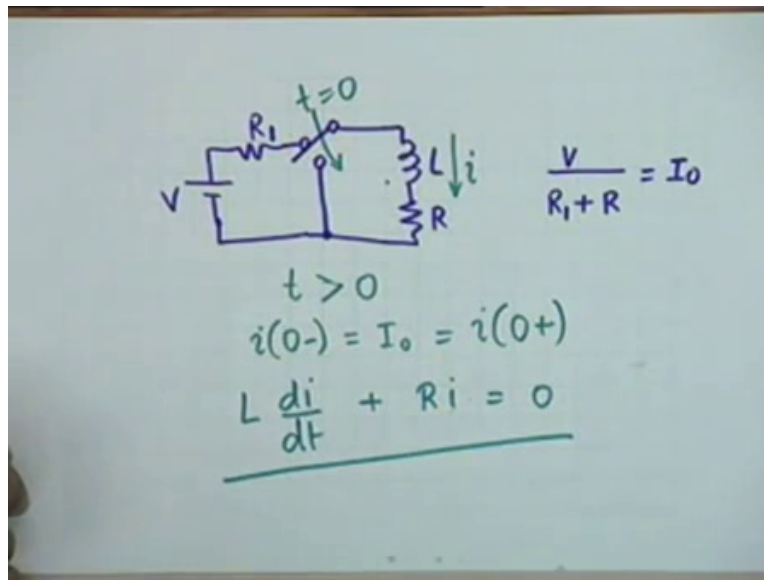 t=0
R₁
V
L
i
R
V/(R₁+R) = I₀
t > 0
i(0-) = I₀ = i(0+)
L di/dt + Ri = 0